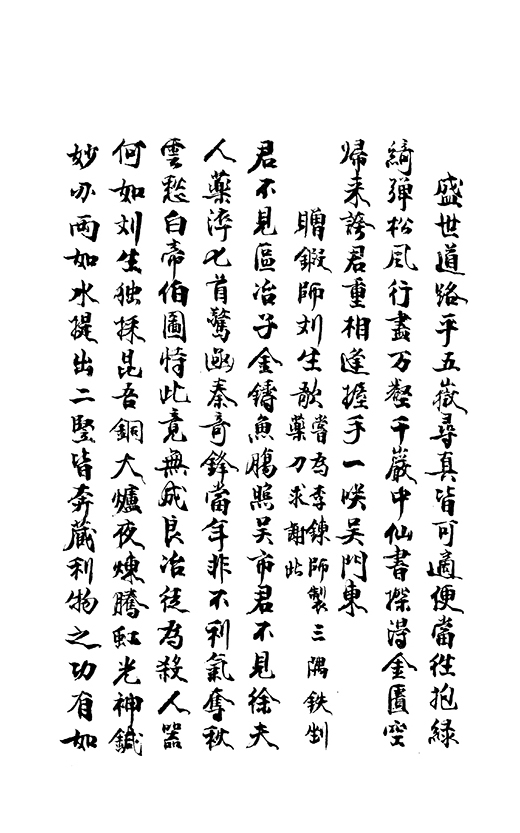 盛世道路平五嶽尋真皆可適便當往抱綠
綺彈松風行盡万壑千巖中仙書探得金匱空
歸来誇君重相逢握手一咲吴門東
贈鍛師刘生歌嘗為李鍊師製三隅鉄剉
藥刀求謝此
君不見區冶子金鑄魚腸照吴市君不見徐夫
人藥淬匕首驚函秦奇鋒當年非不利氣奪秋
雲愁白帝伯圖恃此竟無成良冶徒為殺人器
何如刘生独採昆吾銅大爐夜煉騰虹光神鍼
妙刃両如水提出二豎皆奔藏利物之功有如